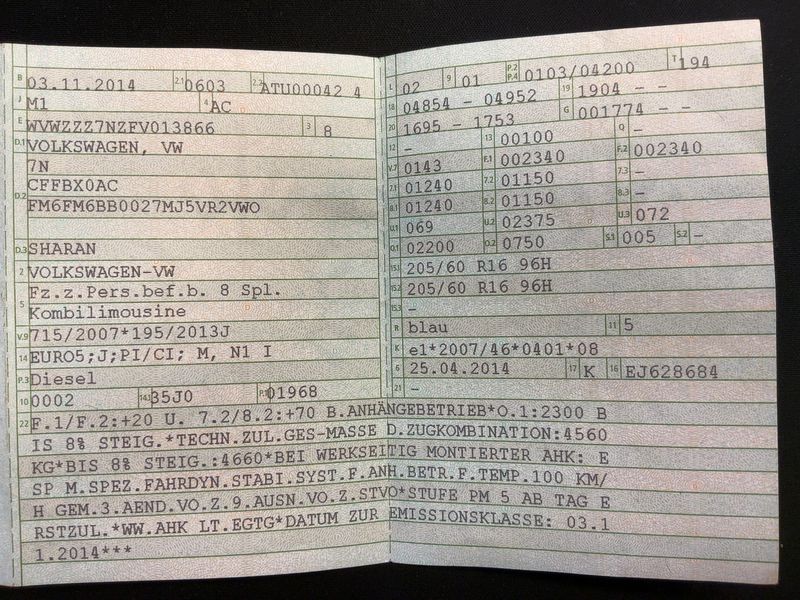 B 03.11.2014 2.1 0603 2.2 ATU00042 4
J M1 4 AC
E WVWZZZ7NZFV013866 3 8
D.1 VOLKSWAGEN, VW
7N
D.2 CFFBX0AC
FM6FM6BB0027MJ5VR2VWO
D.3 SHARAN
2 VOLKSWAGEN-VW
5 Fz.z.Pers.bef.b. 8 Spl.
Kombilimousine
V.9 715/2007*195/2013J
14 EURO5;J;PI/CI; M, N1 I
P.3 Diesel
10 0002 14.1 35J0 P.1 01968
L 02 9 01 P.2 P.4 0103/04200 T 194
18 04854 - 04952 19 1904 - -
20 1695 - 1753 G 001774 - -
12 - 13 00100 Q -
V.7 0143 F.1 002340 F.2 002340
7.1 01240 7.2 01150 7.3 -
8.1 01240 8.2 01150 8.3 -
U.1 069 U.2 02375 U.3 072
O.1 02200 O.2 0750 S.1 005 S.2 -
15.1 205/60 R16 96H
15.2 205/60 R16 96H
15.3 -
R blau 11 5
K e1*2007/46*0401*08
6 25.04.2014 17 K 16 EJ628684
21 -
22 F.1/F.2:+20 U. 7.2/8.2:+70 B.ANHÄNGEBETRIEB*O.1:2300 B
IS 8% STEIG.*TECHN.ZUL.GES-MASSE D.ZUGKOMBINATION:4560
KG*BIS 8% STEIG.:4660*BEI WERKSEITIG MONTIERTER AHK: E
SP M.SPEZ.FAHRDYN.STABI.SYST.F.ANH.BETR.F.TEMP.100 KM/
H GEM.3.AEND.VO.Z.9.AUSN.VO.Z.STVO*STUFE PM 5 AB TAG E
RSTZUL.*WW.AHK LT.EGTG*DATUM ZUR EMISSIONSKLASSE: 03.1
1.2014***